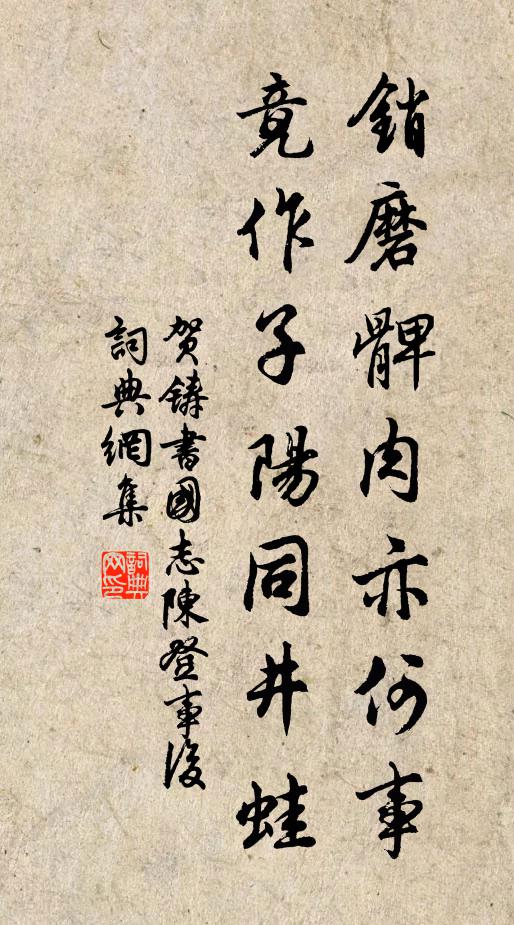 銷磨髀肉亦何事
竟作子陽同井蛙
賀鑄書國志陳登事後
詞典網集
詞典网印